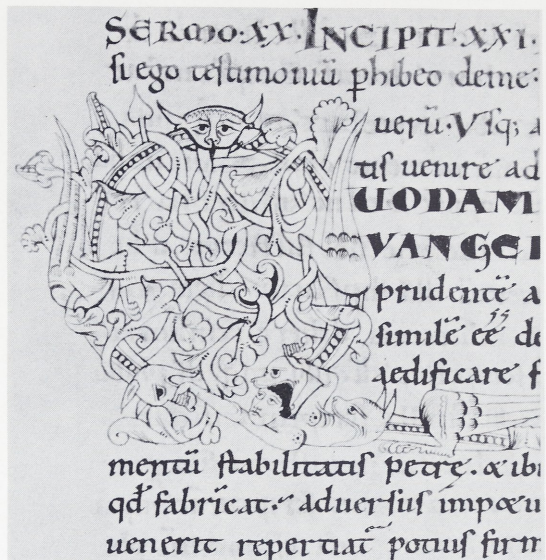 SERMO·XX·INCIPIT·XXI·
si ego testimoniū phibeo de me:
uerū. Vsq; a
tis uenire ad
UODAM
VANGEL
prudentē a
similē eē de
aedificare f
mentū stabilitatis petre. & ibi
qd fabricat. aduersus impetu
uenerit repertiat potius firm